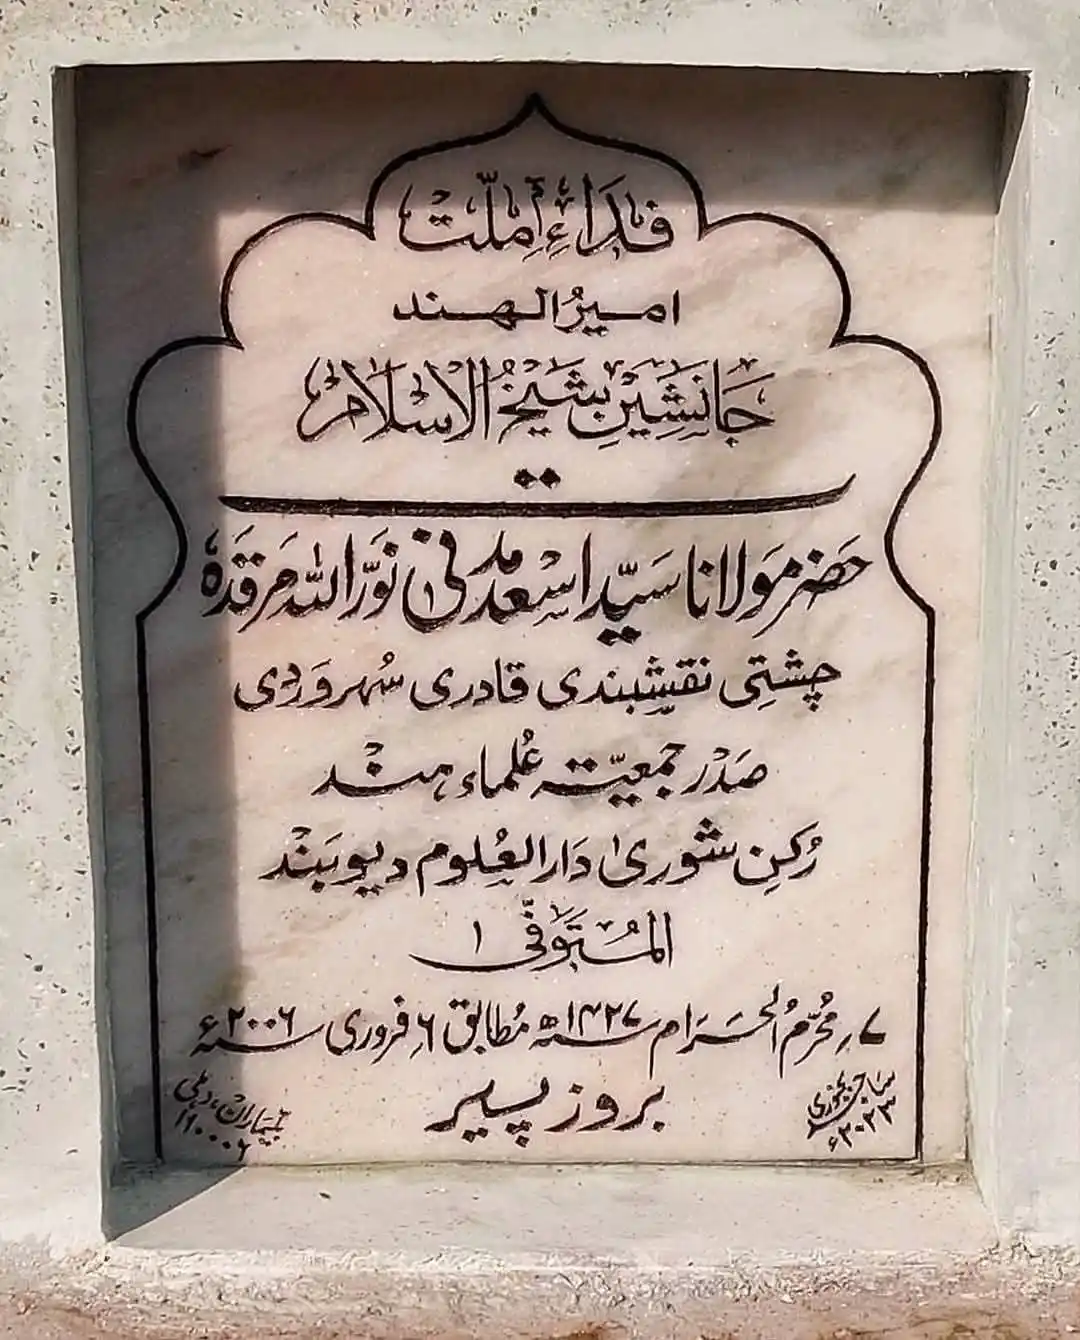 فداءِ ملّت
امیرُ الہند
جانشینِ شیخُ الاسلام
حضرت مولانا سیّد اسعد مدنی نوّر اللہ مرقدہٗ
چشتی نقشبندی قادری سُہروردی
صَدر جمعیّۃ عُلماء ہند
رُکنِ شوریٰ دَارالعُلوم دیوبَند
المُتوَفّیٰ
۷ر مُحرّمُ الحَرَام ۱۴۲۷ھ مُطابق ۶ فروری ۲۰۰۶ء
بروز پیر
۲۰۲۳ء
بلیماران، دہلی ۱۱۰۰۰۶